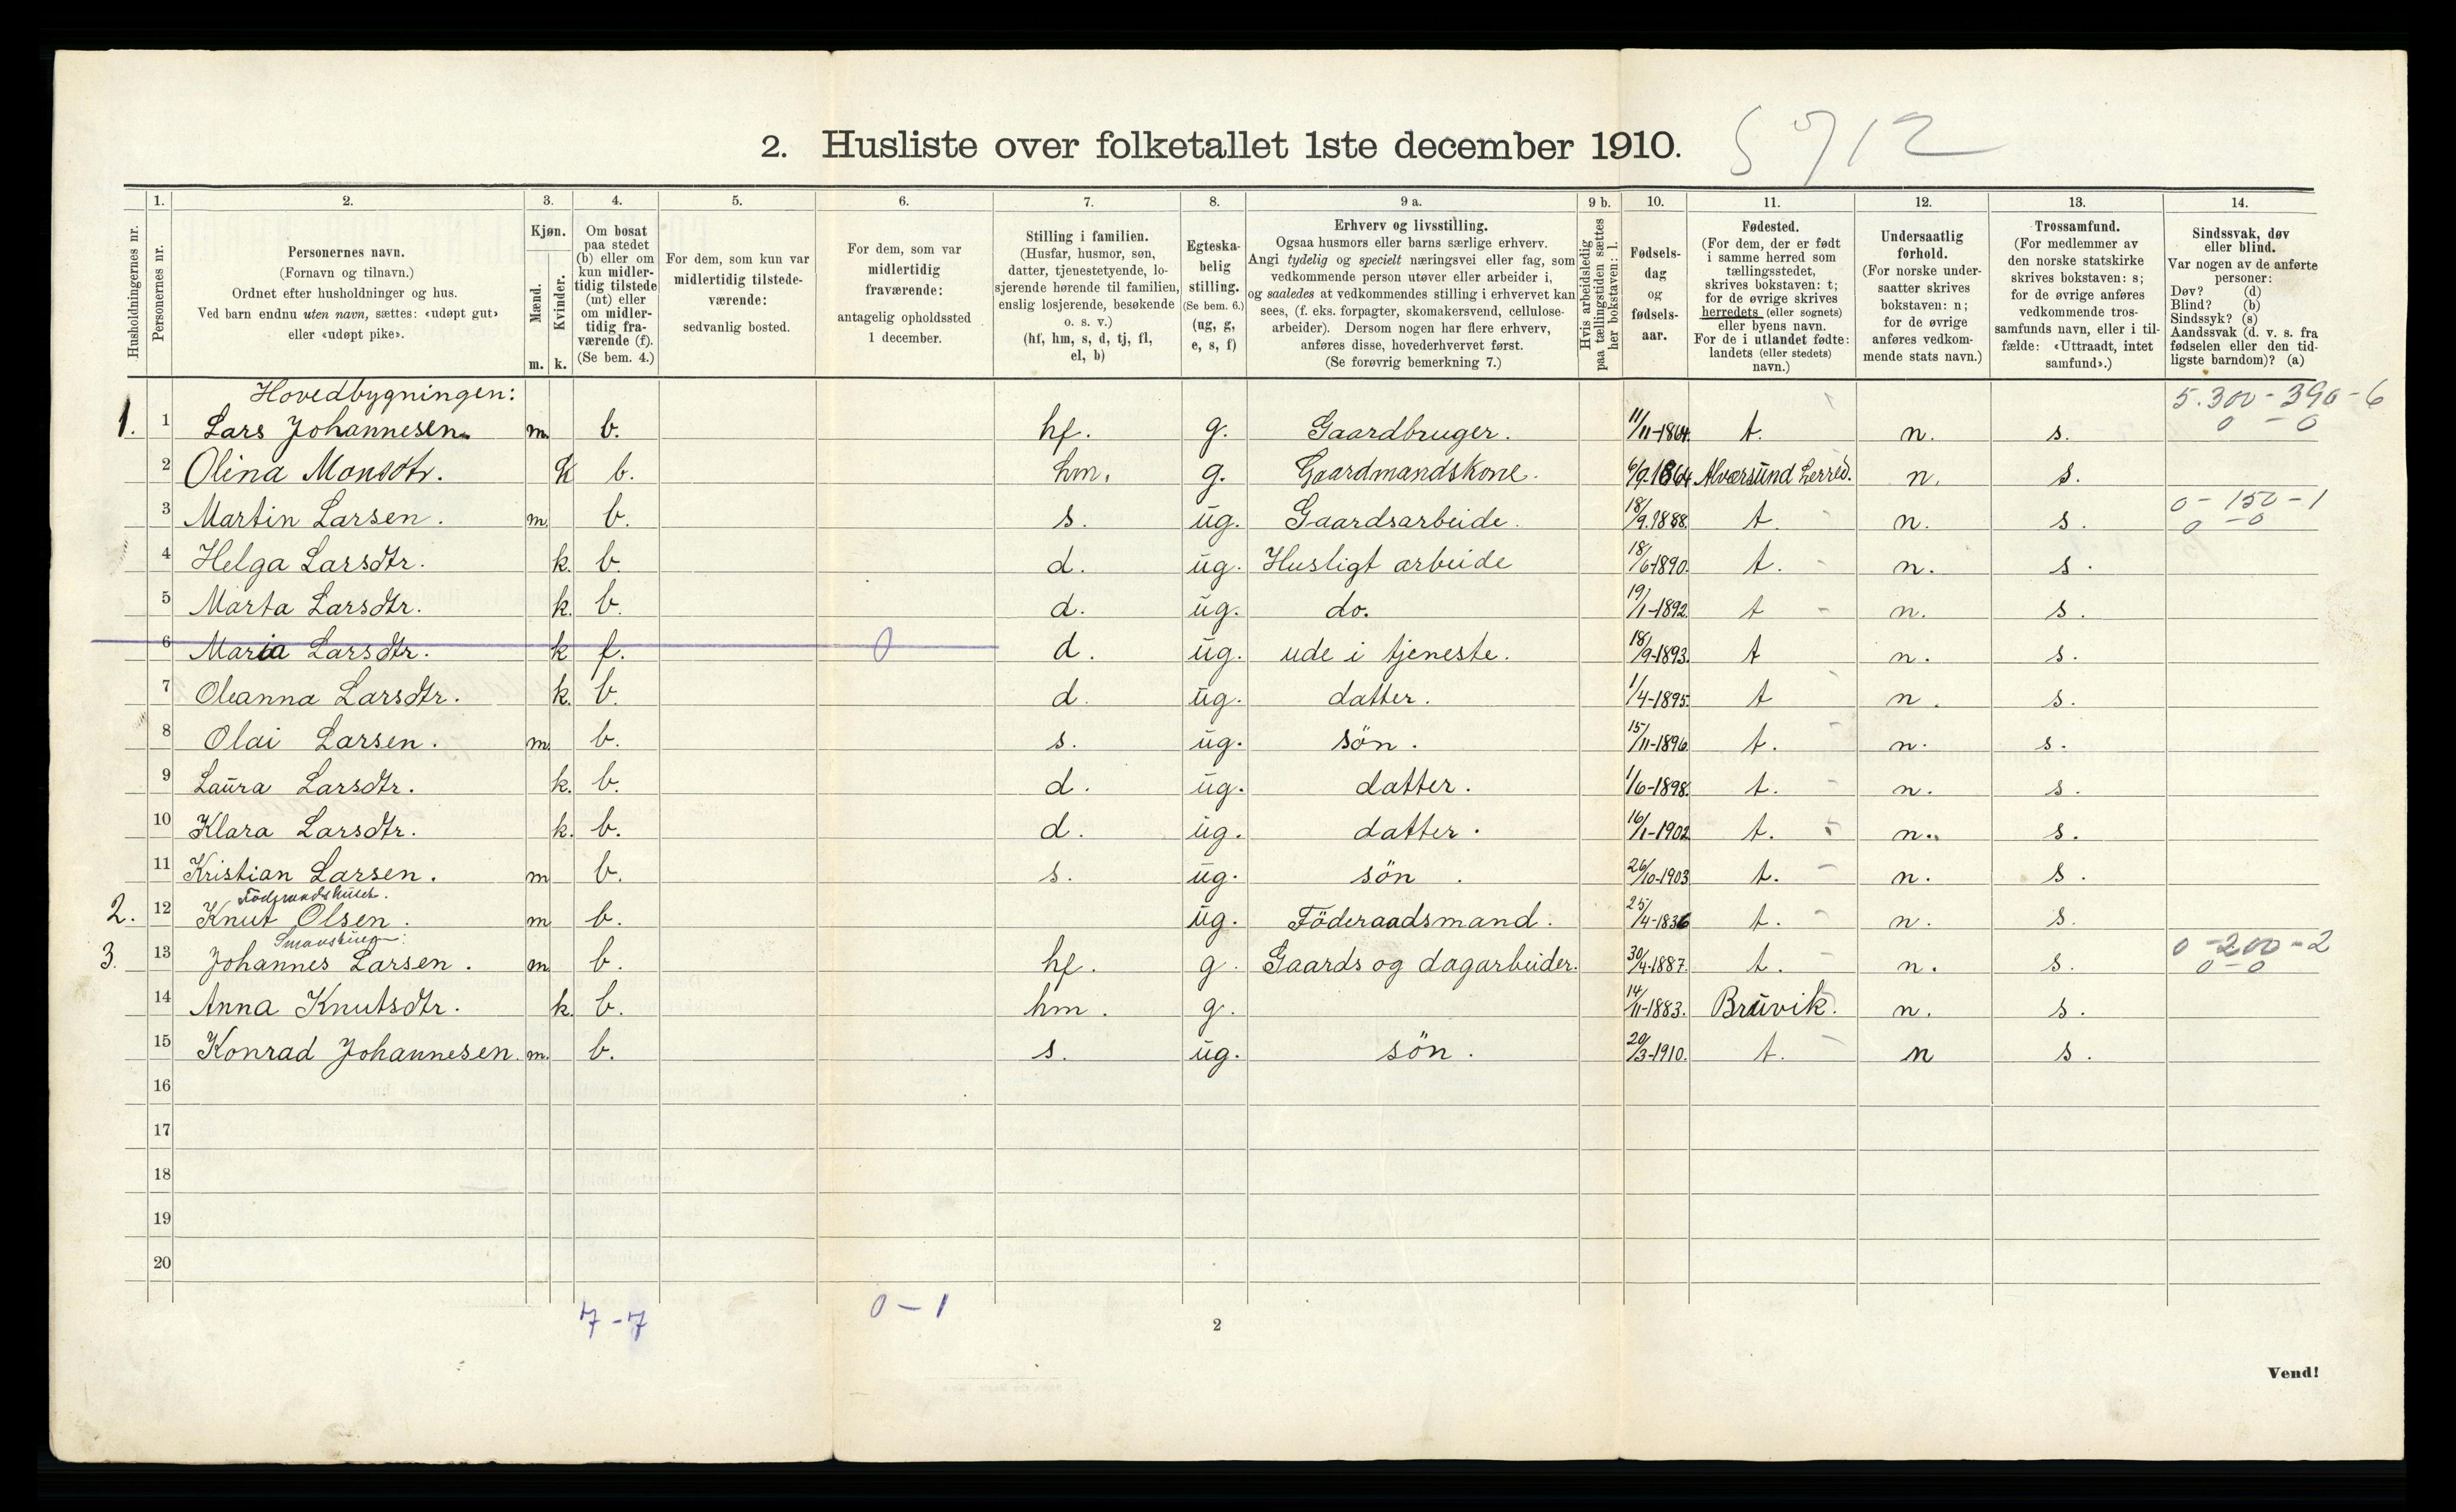 2. Husliste over folketallet 1ste december 1910.
Husholdningernes nr.
1.
Personernes nr.
2.
Personernes navn.
(Fornavn og tilnavn.)
Ordnet efter husholdninger og hus.
Ved barn endnu uten navn, sættes: «udøpt gut»
eller «udøpt pike».
3.
Kjøn.
Mænd.
Kvinder.
m. k.
4.
Om bosat
paa stedet
(b) eller om
kun midler-
tidig tilstede
(mt) eller
om midler-
tidig fra-
værende (f).
(Se bem. 4.)
5.
For dem, som kun var
midlertidig tilstede-
værende:
sedvanlig bosted.
6.
For dem, som var
midlertidig
fraværende:
antagelig opholdssted
1 december.
7.
Stilling i familien.
(Husfar, husmor, søn,
datter, tjenestetyende, lo-
sjerende hørende til familien,
enslig losjerende, besøkende
o. s. v.)
(hf, hm, s, d, tj, fl,
el, b)
8.
Egteska-
belig
stilling.
(Se bem. 6.)
(ug, g,
e, s, f)
9 a.
Erhverv og livsstilling.
Ogsaa husmors eller barns særlige erhverv.
Angi tydelig og specielt næringsvei eller fag, som
vedkommende person utøver eller arbeider i,
og saaledes at vedkommendes stilling i erhvervet kan
sees, (f. eks. forpagter, skomakersvend, cellulose-
arbeider). Dersom nogen har flere erhverv,
anføres disse, hovederhvervet først.
(Se forøvrig bemerkning 7.)
9 b.
Hvis arbeidsledig
paa tællingstiden sættes
her bokstaven: l.
10.
Fødsels-
dag
og
fødsels-
aar.
11.
Fødested.
(For dem, der er født
i samme herred som
tællingsstedet,
skrives bokstaven: t;
for de øvrige skrives
herredets (eller sognets)
eller byens navn.
For de i utlandet fødte:
landets (eller stedets)
navn.)
12.
Undersaatlig
forhold.
(For norske under-
saatter skrives
bokstaven: n;
for de øvrige
anføres vedkom-
mende stats navn.)
13.
Trossamfund.
(For medlemmer av
den norske statskirke
skrives bokstaven: s;
for de øvrige anføres
vedkommende tros-
samfunds navn, eller i til-
fælde: «Uttraadt, intet
samfund».)
14.
Sindssvak, døv
eller blind.
Var nogen av de anførte
personer:
Døv? (d)
Blind? (b)
Sindssyk? (s)
Aandssvak (d. v. s. fra
fødselen eller den tid-
ligste barndom)? (a)
Hovedbygningen: 5.300-390-6
1. 1 Lars Johannesen. m. b. hf. g. Gaardbruger. 11/11-1864. t. n. s. 0 - 0
2 Olina Monsdtr. k b. hm. g. Gaardmandskone. 6/9-1864 Alversund herred. n. s.
3 Martin Larsen. m. b. s. ug. Gaardsarbeide. 18/9.1888. t. n. s. 0-150-1 0-0
4 Helga Larsdtr. k. b. d. ug. Husligt arbeide 18/6-1890. t. n. s.
5 Marta Larsdtr. k. b. d. ug. do. 19/1-1892. t n. s.
6 Maria Larsdtr. k f. 0 d. ug. ude i tjeneste. 18/9-1893. t n. s.
7 Oleanna Larsdtr. k. b. d. ug. datter. 1/4-1895. t n. s.
8 Olai Larsen. m. b. s. ug. sön. 15/11-1896. t. n. s.
9 Laura Larsdtr. k. b. d. ug. datter. 1/6-1898. t. n. s.
10 Klara Larsdtr. k. b. d. ug. datter. 16/1-1902 t. n. s.
11 Kristian Larsen. m b. s. ug. sön. 26/10-1903 t. n. s.
Föderaadshuset.
2. 12 Knut Olsen. m b. ug. Föderaadsmand. 25/4-1836 t. n. s.
3. 13 Johannes Larsen. m. b. hf. g. Gaards og dagarbeider. 30/4-1887. t. n. s. 0-200-2 0-0
14 Anna Knutsdtr. k. b. hm. g. 14/11-1883. Bruvik. n. s.
15 Konrad Johannesen. m. b. s. ug. sön. 20/3-1910. t. n s.
16
17
18
19
20
7-7 0-1
2
Vend!